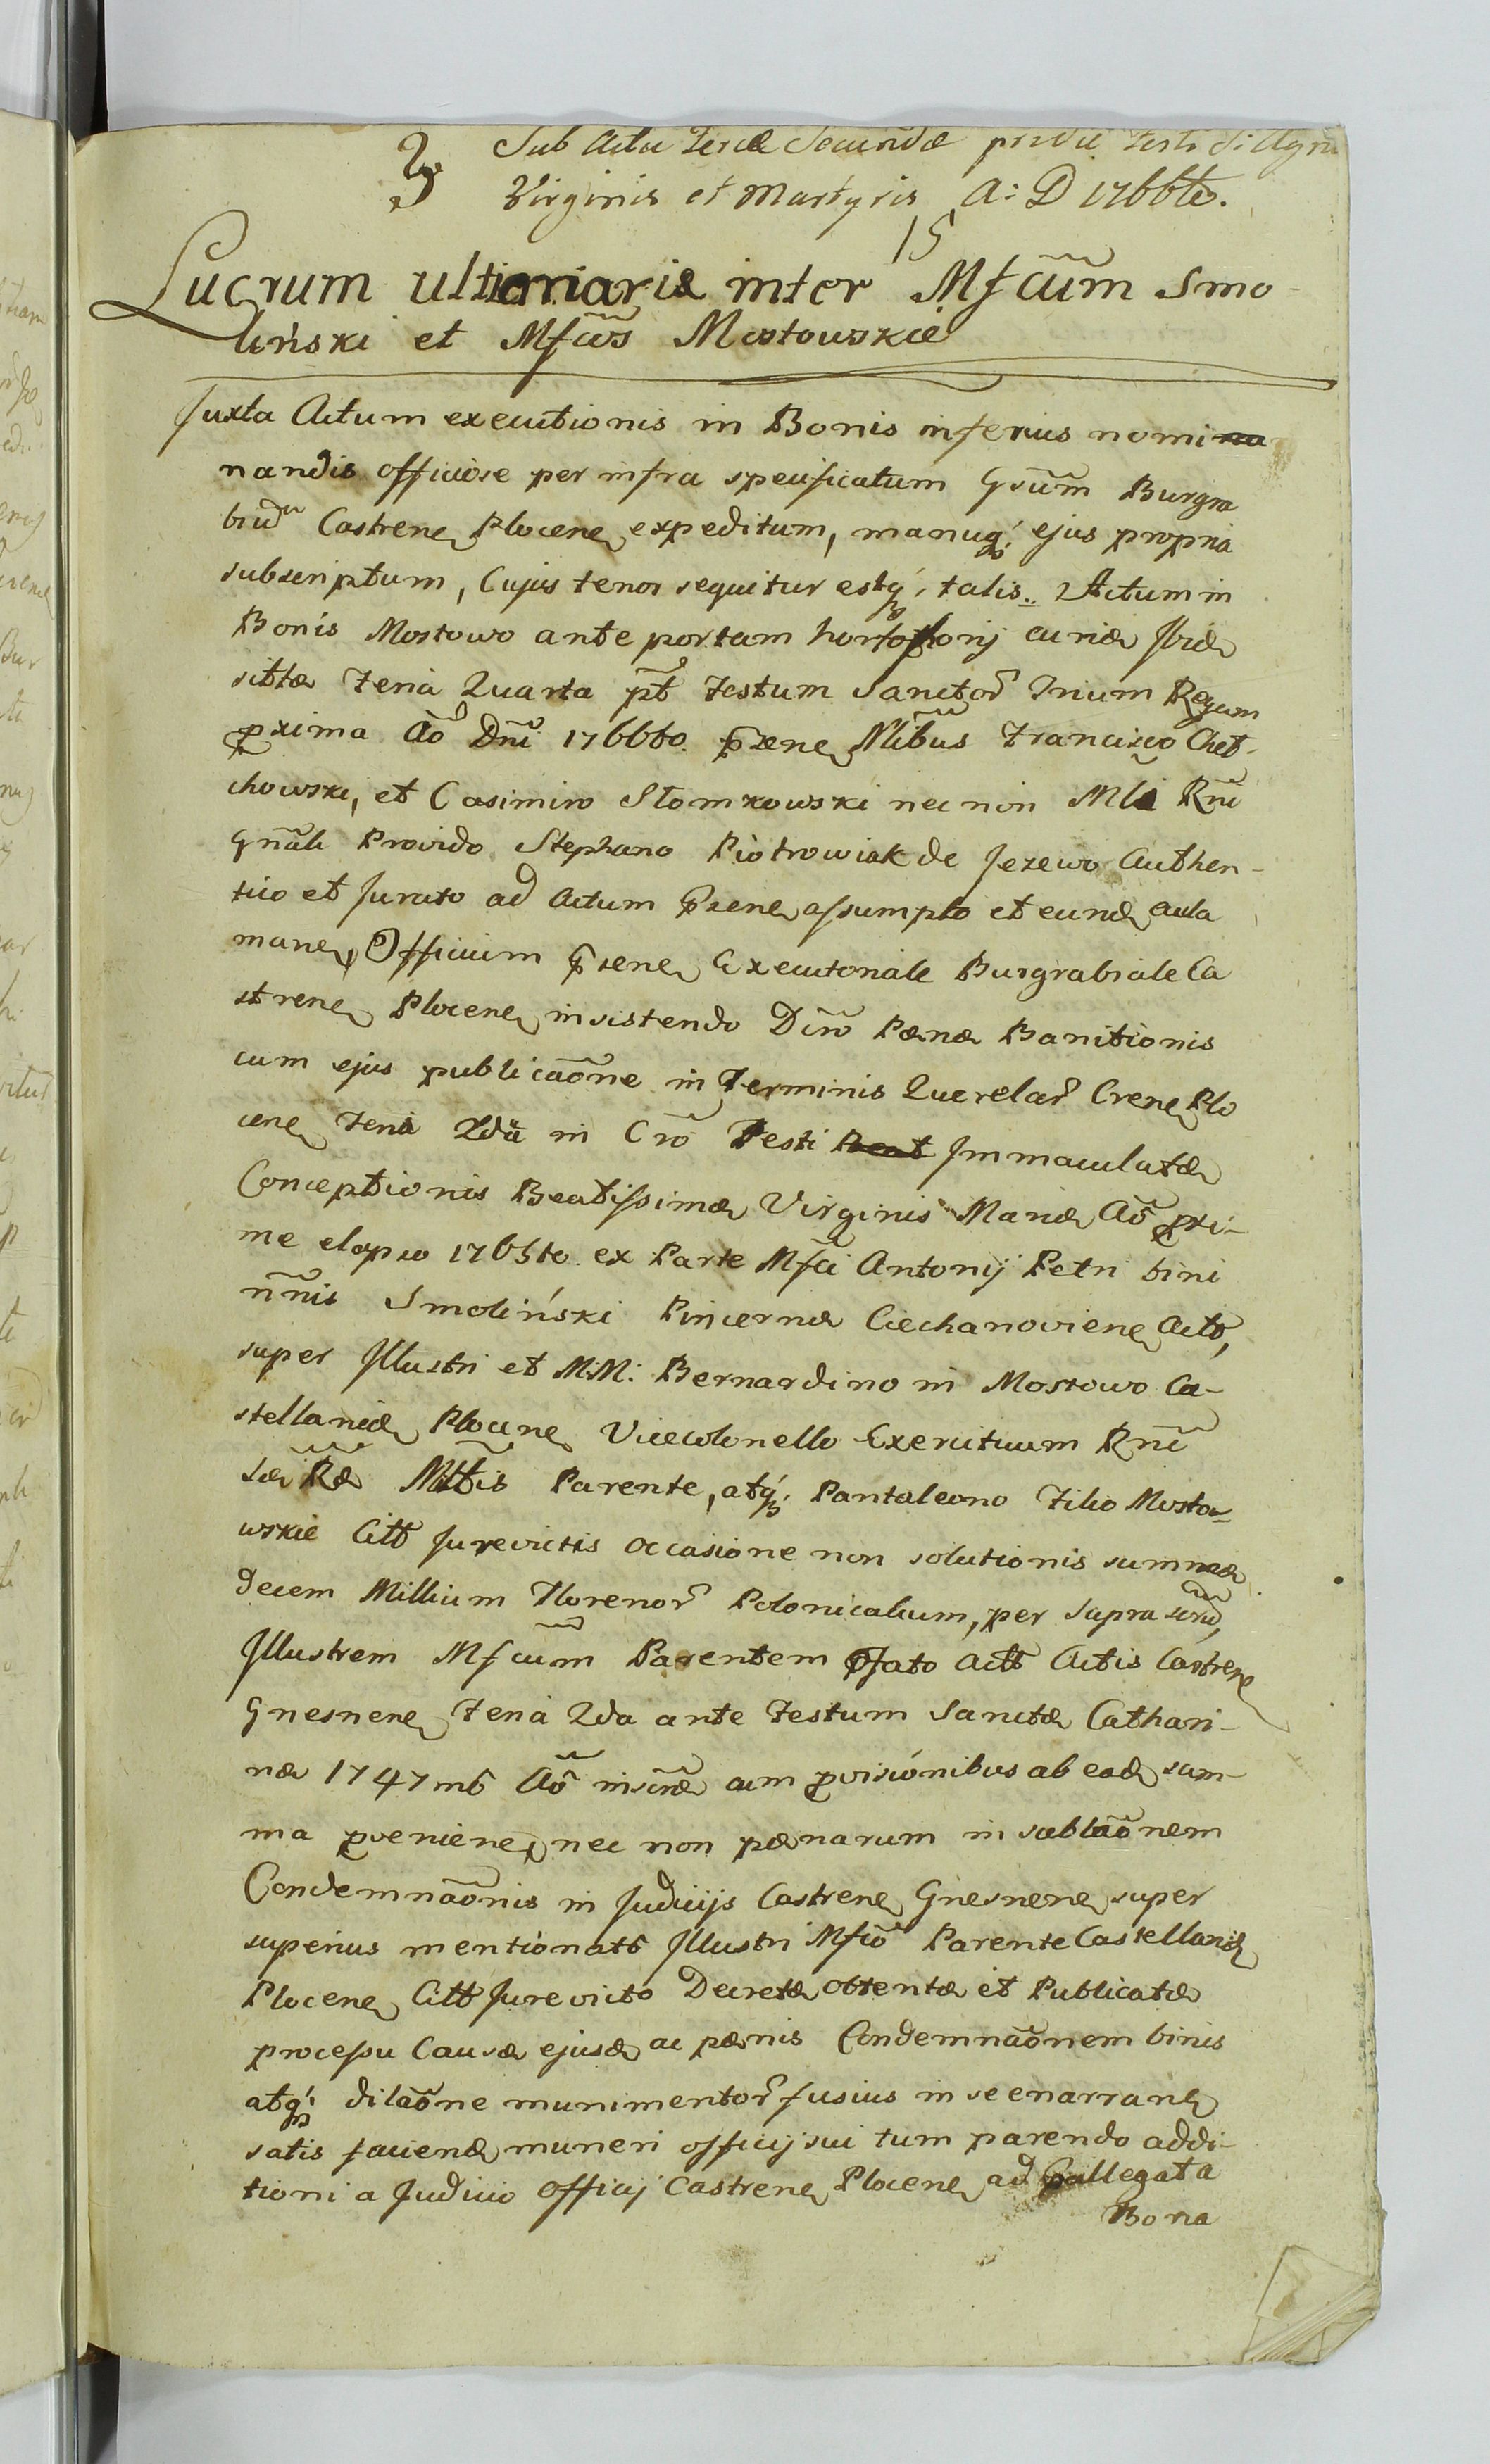 3 Sub Actu Feriæ Secundæ pridie Festi S: Agn
Virginis et Martyris A: D 1766to.
15
Lucrum ultionariæ inter Mfcum Smo-
liński et Mfcos Mostowskie
Juxta Actum executionis in Bonis inferius nomi
nandis officiose per infra specificatum Gsum Burgra
biu Castrene Plocene expeditum, manuq; ejus propria
subscriptum, Cujus tenor sequitur estq; talis. Actum in
Bonis Mostowo ante portam curiæ Ibid
sittæ Feria Quarta pt Festum Sanctor Trium Regum
pxima Ao Dni 1766to. psene Nlibus Francisco Chet-
chowski, et Casimiro Słomkowski nec non Mli Rni
Gnali Provido Stephano Piotrowiak de Jezewo Authen-
tico et Jurato ad Actum psene assumpto et eund acta
mane, Officium psene Executoriale Burgrabiale Ca
strene Plocene insistendo Dcro Pænæ Banitionis
cum ejus publicaone in Terminis Querelar Crene Plo
cene Feria 2da in Cro Festi Beat Immaculatæ
Conceptionis Beatissimæ Virginis Mariæ Ao pxi-
me elapso 1765to. ex Parte Mfci Antonij Petri bini
nnis Smoliński Pincernæ Ciechanoviene Acto,
super Illustri et M.M: Bernardino in Mostowo Ca-
stellanid Plocene Vicecolonello Exercituum Rni
Sæ Ræ Mttis Parente, atq; Pantaleono Filio Mosto-
wskie Citt Jurevictis occasione non solutionis summæ
decem Millium Florenor Polonicalium, per supra scru,
Illustrem Mfcum Parentem pfato Actt Actis Castrene
Gnesnene Feria 2da ante Festum Sanctæ Cathari-
næ 1747mo Ao inscræ cum pvisionibus ab ead sum-
ma pveniene, nec non pænarum in sublaonem
Condemnaonis in Judicijs Castrene Gnesnene super
superius mentionato Illustri Mfco Parente Castellanid
Plocene Citt Jurevicto Decretæ obtentæ et Publicatæ
processu Causæ ejusd ac pænis Condemnaonem binis
atq; dilaone munimentor fusius in se enarrane
satis faciend muneri officij sui tum parendo addi-
tioni a Judicio Officij Castrene Plocene ad pallegata
Bona